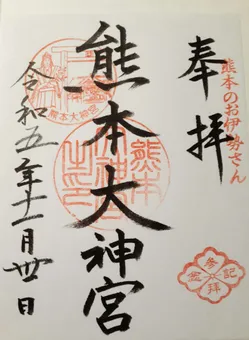 奉拝
熊本のお伊勢さん
熊本大神宮
熊本大神宮
熊本
大神宮
之印
令和五年十一月卅日
参拝記念